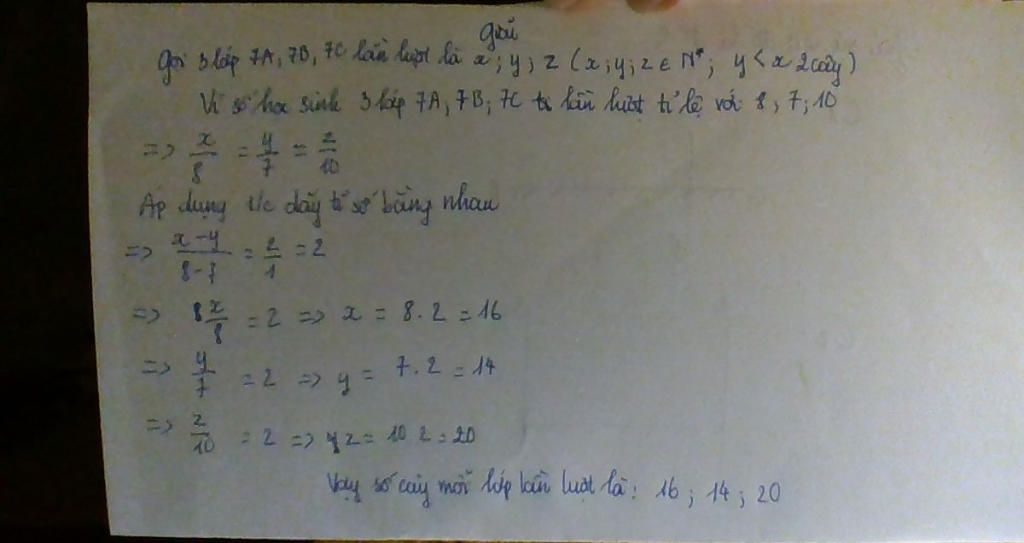 Giải
Gọi 3 lớp 7A, 7B, 7C lần lượt là x; y; z (x; y; z ∈ N*; y < x 2 cây)
Vì số học sinh 3 lớp 7A, 7B; 7C lần lượt tỉ lệ với 8, 7; 10
=> x/8 = y/7 = z/10
Áp dụng t/c dãy tỉ số bằng nhau
=> x-y/8-7 = 2/1 = 2
=> x/8 = 2 => x = 8.2 = 16
=> y/7 = 2 => y = 7.2 = 14
=> z/10 = 2 => z = 10 2 = 20
Vậy số cây mỗi lớp lần lượt là: 16; 14; 20